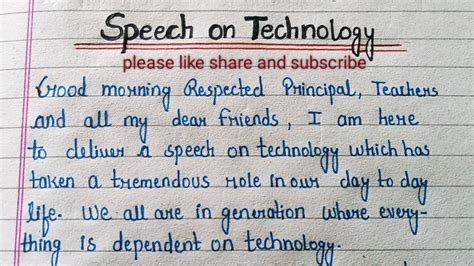 Speech on Technology
please like share and subscribe
Good morning Respected Principal, Teachers
and all my dear friends, I am here
to deliver a speech on technology which has
taken a tremendous role in our day to day
life. We all are in generation where every-
thing is dependent on technology.